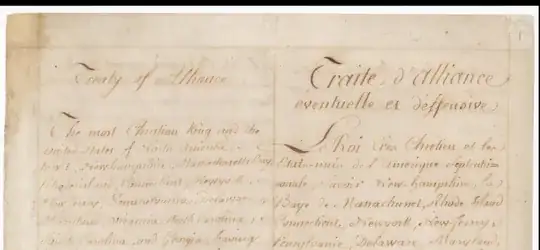 Treaty of Alliance
The most Christian King and the
united States of North America,
New hampshire, Massachusetts Bay,
Rhode island, Newyork,
New Jersey, Pennsylvania, Delaware
Maryland, Virginia, North Carolina,
South Carolina, and Georgia, having
Traité d'Alliance
eventuelle et deffensive
Le Roi très Chretien et les
Etats unis de l'amerique septentrio
nale, savoir New-hampshire, la
Baye de Massachuset, Rhode Island
Connecticut, Newyork, New-Jersey,
Pensylvanie, Delaware, Maryland,